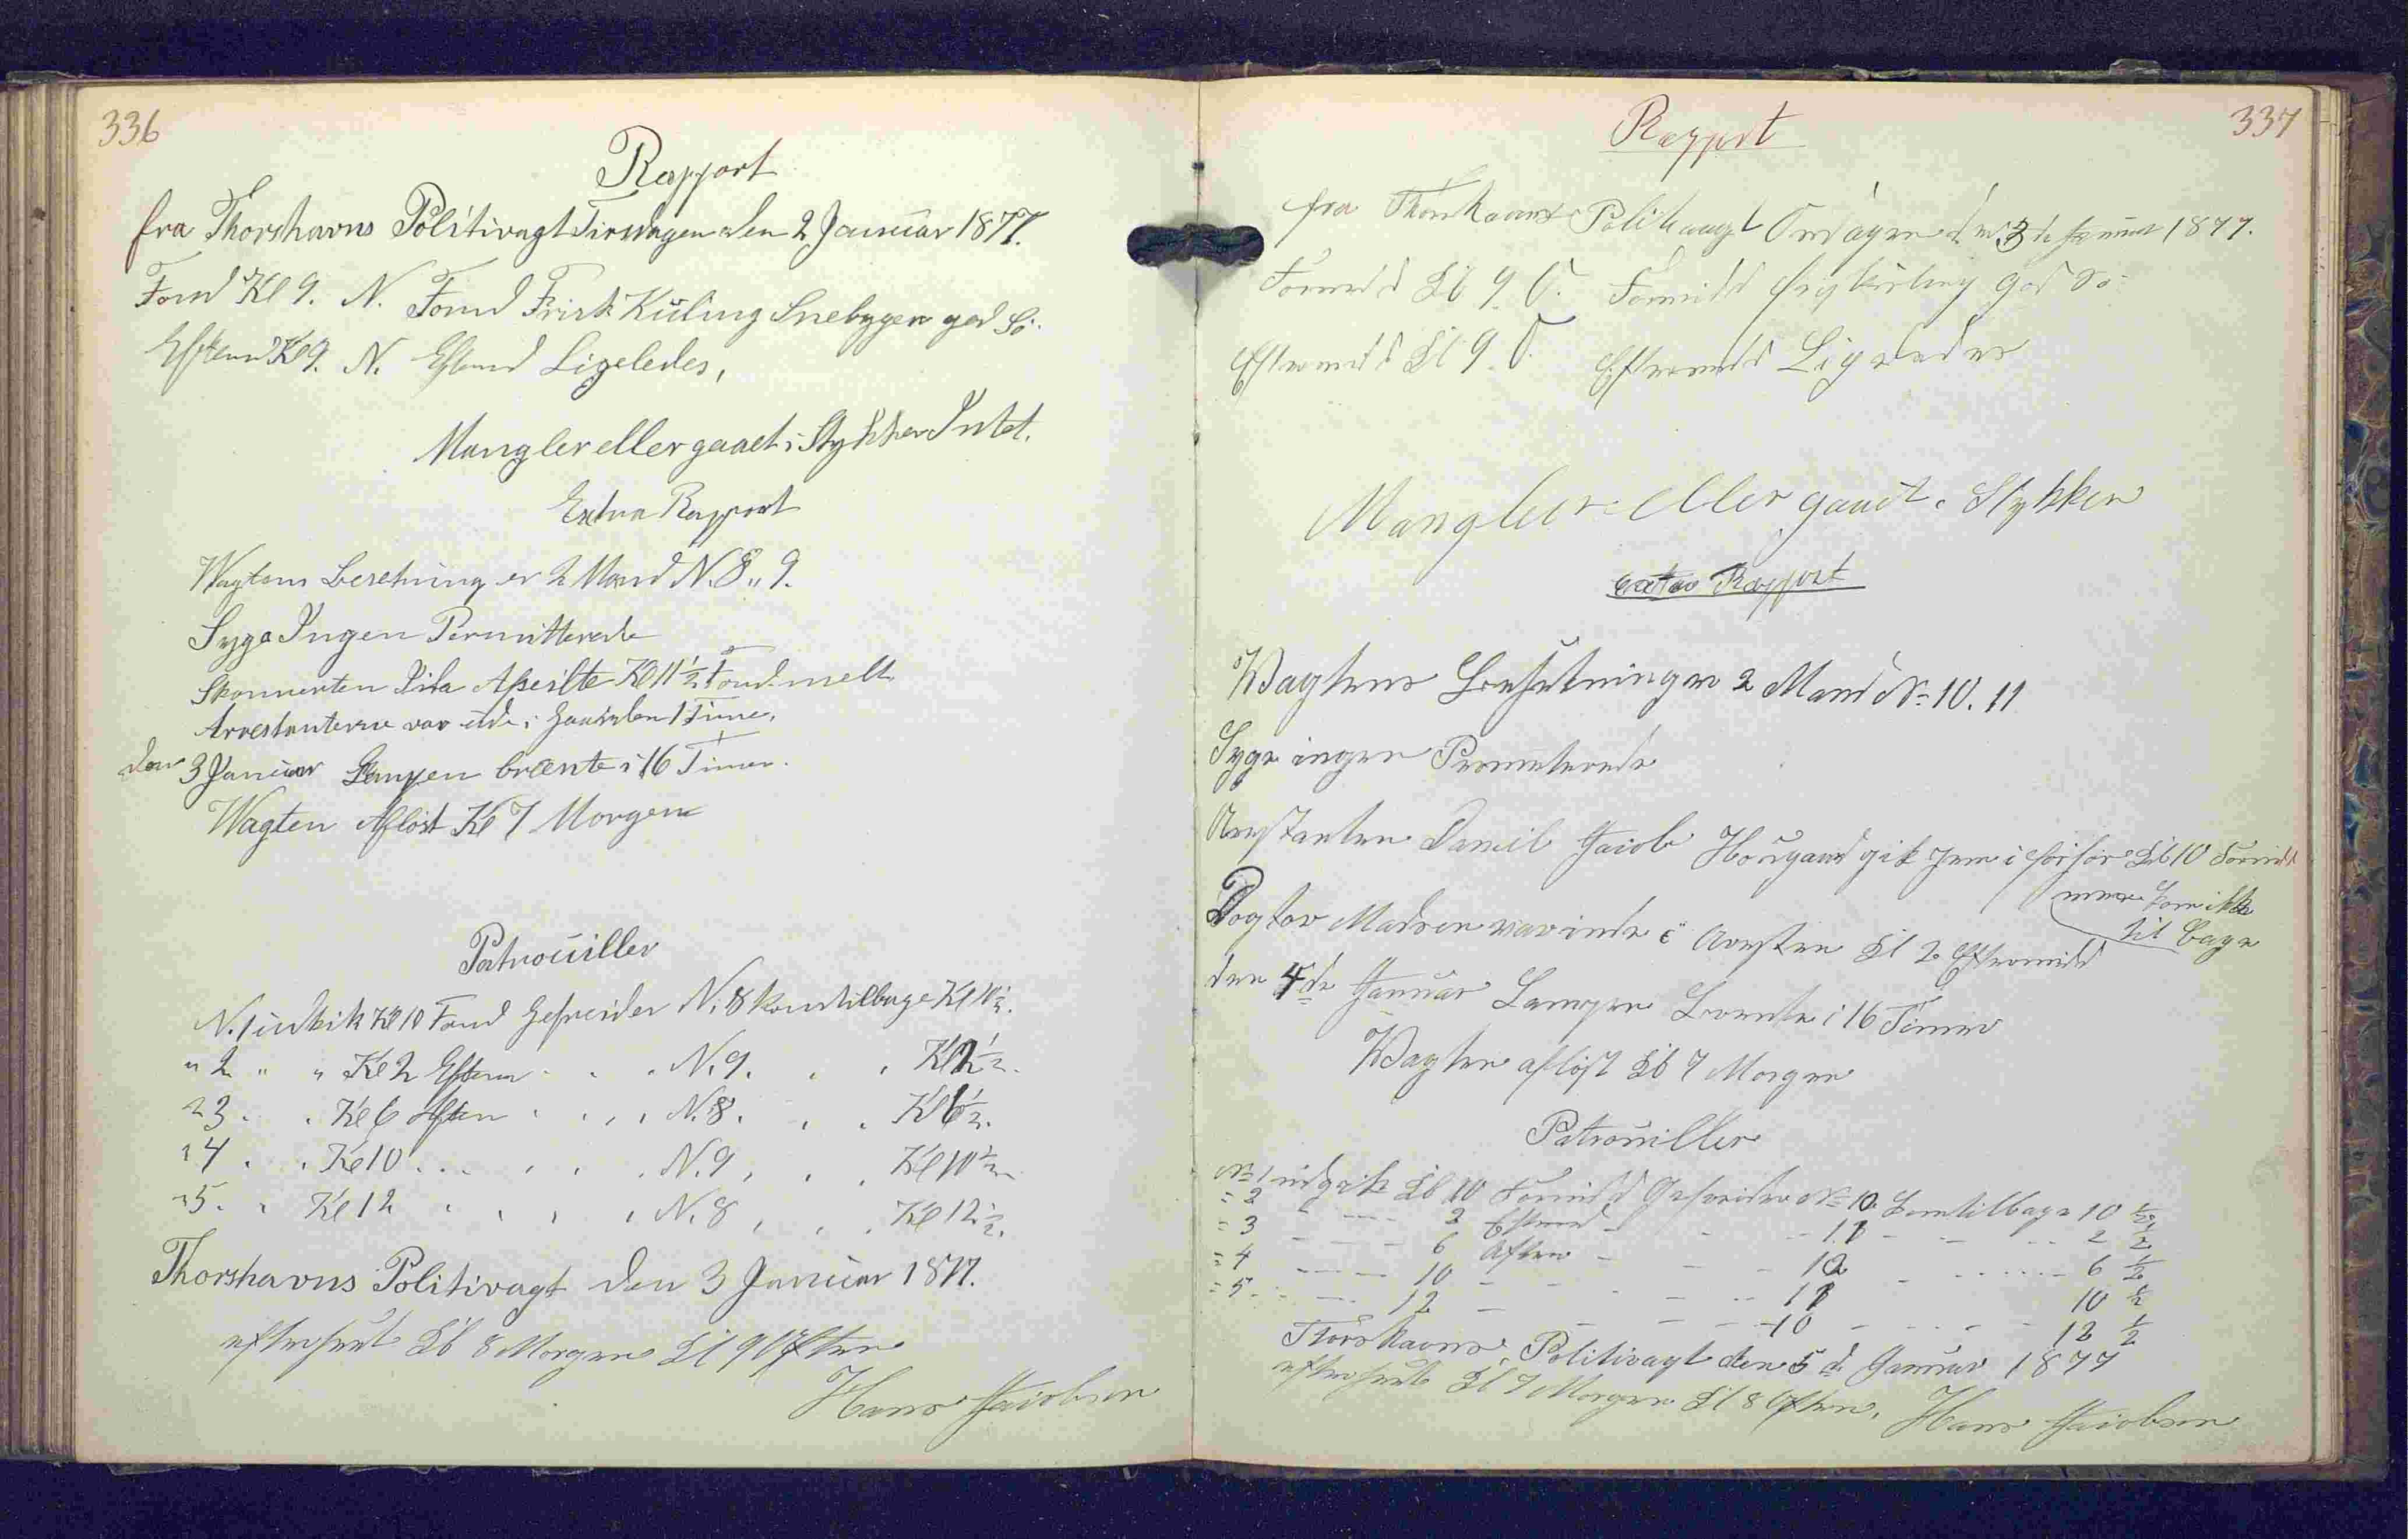 336
Rapport
fra Thorshavns Politivagt Tirsdagen den 2 Januar 1877.
Formd Kl 9. N. Formd Frisk Kuling Snebyger god Sö.
Eftermd Kl 9. N. Eftermd Ligeledes,
Mangler eller gaaet i Stykker Intet.
Extra Rapport
Wagtens Besetning er 2 Mand N. 8 " 9.
Syge Ingen Permitterede
Skonnerten Afseilte Kl 11½ Formd
Arrestanterne var ude i Gaarden 1 Time.
den 3 Januar Lampen brænte i 16 Timer.
Wagten Afløst Kl 7 Morgen
Patrouiller
N. 1 udgik Kl 10 Formd Gefreider N. 8 kom tilbage Kl 10½.
" 2 " " Kl 2 Efterm " " " N. 9. " " Kl 2½.
" 3 " " Kl 6 Aften " " " N. 8. " " Kl 6½.
" 4 " " Kl 10 " " " N. 9 " " Kl 10½
" 5 " " Kl 12 " " " N. 8 " " Kl 12½.
Thorshavns Politivagt den 3 Januar 1877.
efterseet Kl 8 Morgen Kl 9 Aften
Hans Jacobsen
337
Rapport
fra Thorshavns Politivagt Onsdagen den 3de Januar 1877.
Formidd Kl 9 O. Formidd frisk Kuling god Sö
Eftermidd Kl 9. O. Eftermidd Ligeledes
Mangler eller gaaet i Stykker
extra Rapport
Wagtens Besetning er 2 Mand No 10. 11
Syge ingen Permiterede
Arestanten Daniel Jacob gik hem i forhør Kl 10 Formidd
men kom ikke
til bage
Dogtor Madsen var inde i Aresten Kl 2 Eftermidd
den 4de Januar Lampen brente i 16 Timer
Wagten afløst Kl 7 Morgen
Patrouiller
No 1 udgik Kl 10 Formidd Gefreider No 10 kom tilbage 10 ½
= 2 - - 2 Efterm - - 11 - - 2 ½
= 3 - - 6 Aften - - 10 - - 6 ½
= 4 - - 10 - - 11 - - 10 ½
= 5 - - 12 - - 10 - - 12 ½
Thorshavns Politivagt den 5d Januar 1877
efterseet Kl 7 Morgen Kl 8 Aften. Hans Jacobsen